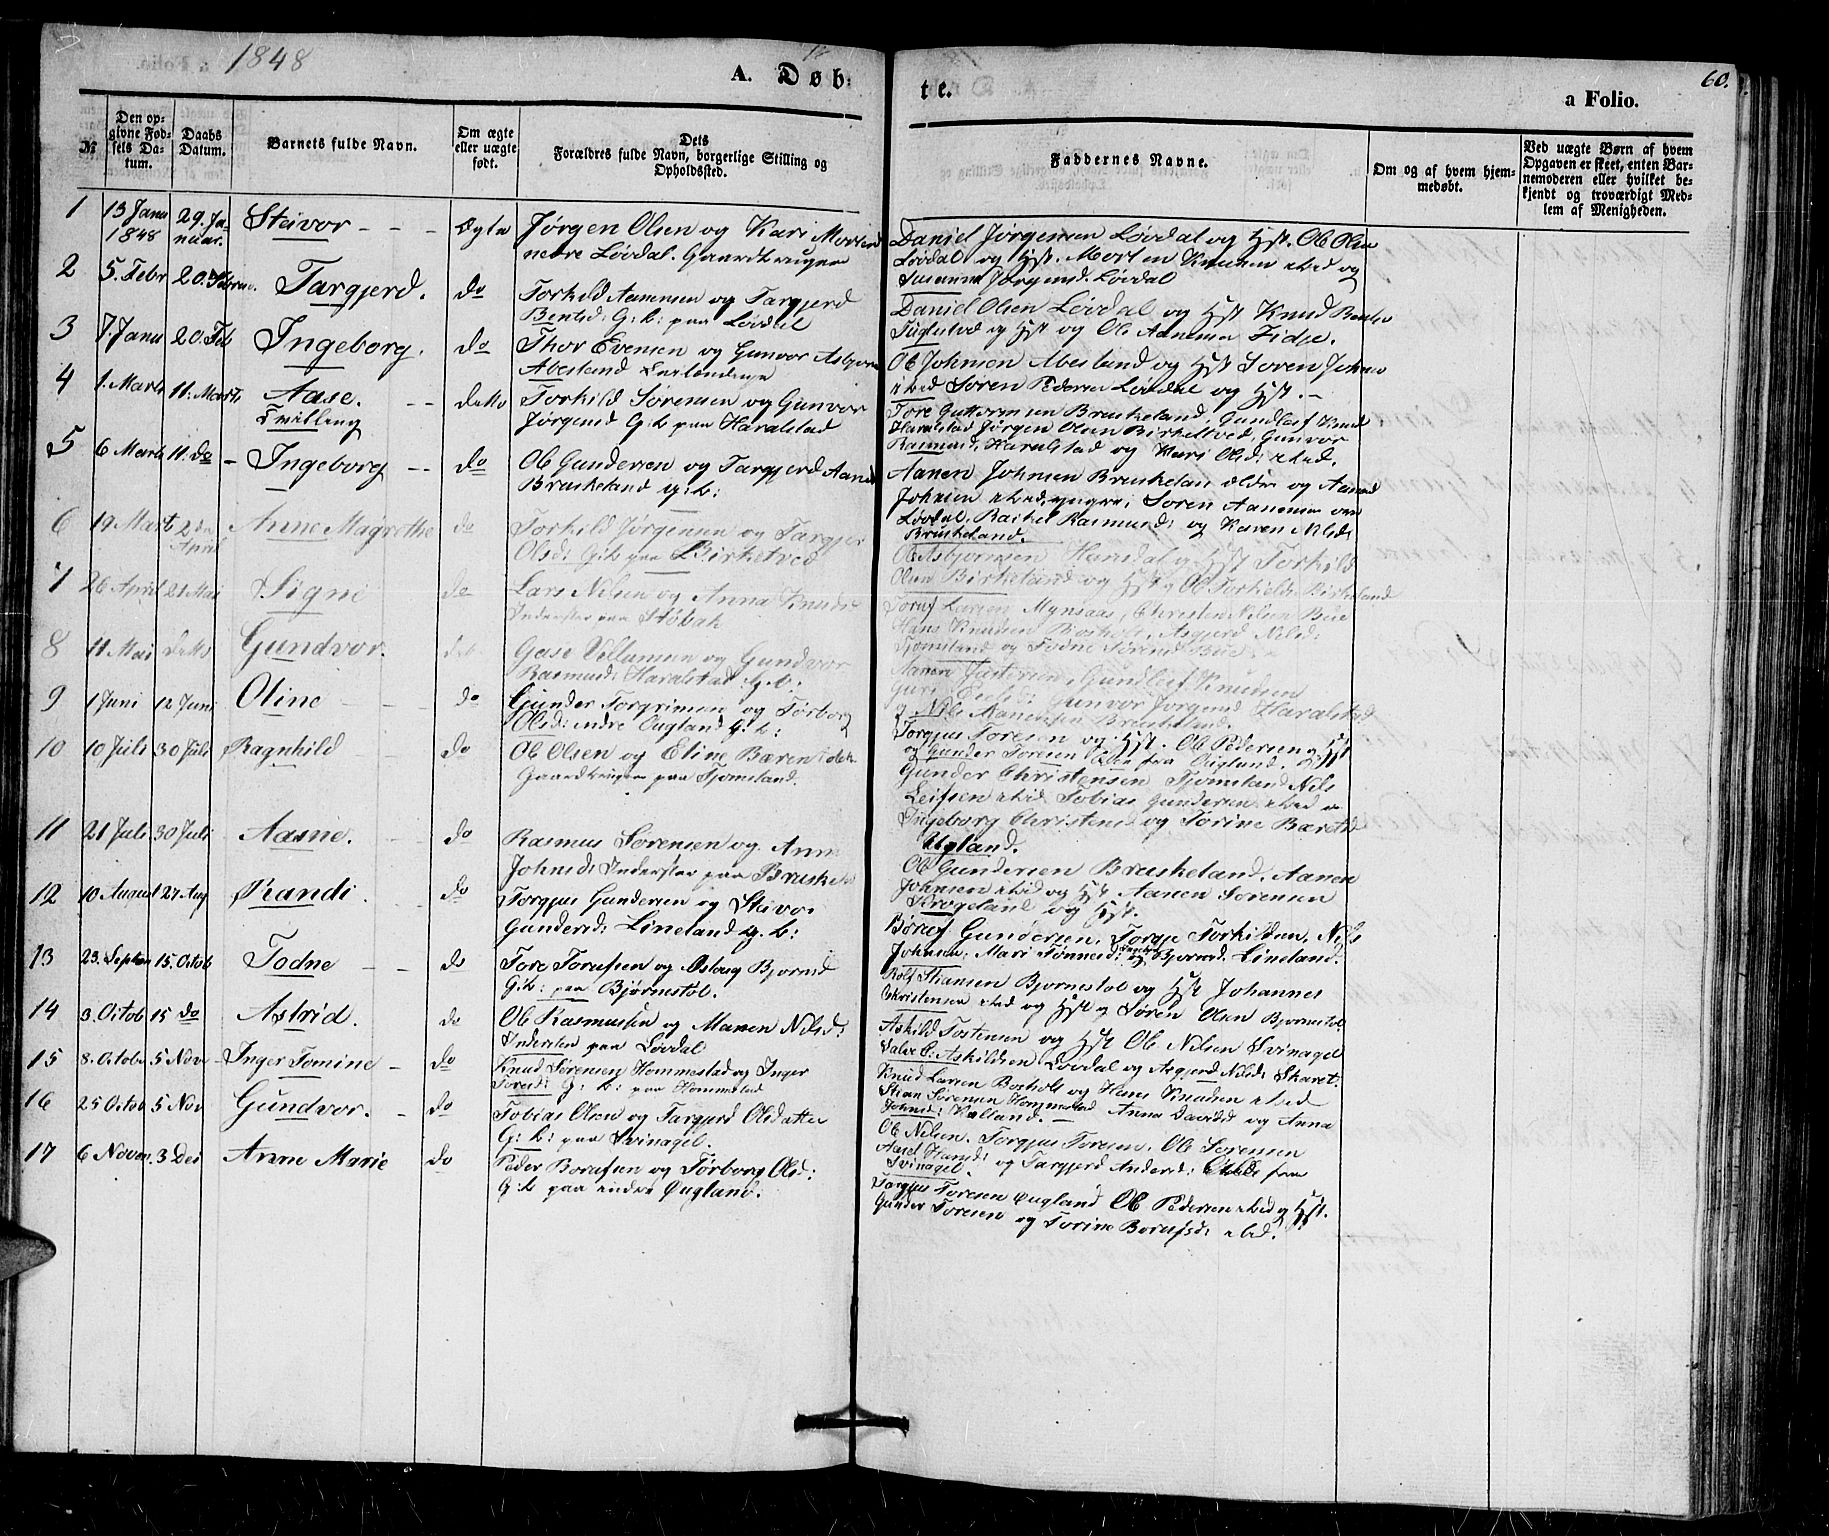 1848
A. Døb-
te.
60.
a Folio.
№
Den op-
givne Fød-
sels Da-
tum.
Daabs
Datum.
Barnets fulde Navn.
Om ægte
eller uægte
født.
Dets
Forældres fulde Navn, borgerlige Stilling og
Opholdssted.
Faddernes Navne.
Om og af hvem hjem-
medøbt.
Ved uægte Børn af hvem
Opgaven er skeet, enten Bar-
nemoderen eller hvilket be-
kjendt og troværdigt Med-
lem af Menigheden.
1 13 Janu 1848 29. Januar. Steivor Ægte
Jørgen Olsen og Kari
nedre Løvdal. Gaardbrugere
Daniel Jørgensen Løvdal og Hst. Ole Olsen
Løvdal og Hst. Morten Knudsen ibid og
Susanna Jørgensd. Løvdal
2 5. Febr 20. Februar. Targjerd. do
Torkild Aanensen og Targjerd
Bentsd: G: b: paa Løvdal
Daniel Olsen Løvdal og Hst Knud
og Hst og Ole Aanensen Fidje.
3 7. Janu 20. Feb Ingeborg. do
Thor Evensen og Gunvor Asbjorn
Abesland
Ole Johnsen Abesland og Hst Soren Johns
ibid Soren Pedersen Løvdal og Hst.
4 1. Marts 11. Marts Aase. Tvilling detto
Torkild Sørensen og Gunvor
Jørgensd G: b paa Haralstad
Tore Guttormsen Bruskeland Gundleif Knud
Haralstad Jørgen Olsen Birketved, Gunvor
Rasmusd. Haralstad og Kari Olsd: ibid.
5 6 Marts 11. do Ingeborg do
Ole Gundersen og Targjerd Aanens
Bruskeland g: b:
Aanen Johnsen Bruskeland ældre og Aanen
Johnsen ibid, yngre, Soren Aanensen
Løvdal, Rachel Rasmusd: og Karen Nilsd:
Bruskeland.
6 19 Mart April Anne Magrethe do
Torkild Jørgensen og Targjer
Olsd: G: b paa Birketved
Ole Asbjornsen Handal og Hst Torkild
Olsen Birkeland og Hst og Ole Torkilds. Birkeland
7 26 April 21 Mai Signe do
Lars Nilsen og Anna Knuds
Inderster paa Støbak
Joruf Larsen Mynsaas, Christen Nilsen Bue
Hans Knudsen Bosholt, Asgjerd Nilsd:
Tjomsland og Todne Sørensd Bue.
8 11 Mai detto Gundvor. do
Gase Villumsen og Gundvor
Rasmusd: Haralstad g: b:
Aanen Gundleif Knudsen
Gunvor Jorgensd Haralstad
og Nils Aanensen Bruskeland.
9 1 Juni 12 Juni Oline do
Gunder Torgrimsen og Torborg
Olsd: indre Øugland g: b:
Torgjus Toresen og Hst. Ole Pedersen og Hst
og Gunder Toresen alle fra Øugland.
10 10 Juli 30 Juli Ragnhild do
Ole Olsen og Eline
Gaardbruger paa Tjomsland.
Gunder Christensen Tjomsland, Nils
Leifsen ibid Tobias Gundersen ibid
Ingeborg Christensd og Torine
Ugland.
11 21 Juli 30 Juli Aasne. do
Rasmus Sørensen og Anne
Johnsd: Inderster paa Bruskeland
Ole Gundersen Bruskeland, Aanen
Johnsen ibid og Hst Aanen Sorensen
Krogeland og Hst.
12 10 August 27 Aug Randi do
Torgjus Gundersen og Stivor
Gundersd: Lineland g. b:
Børuf Gundersen, Torgje Torkildsen, Nils
Johnsen, Mari Tønnesd: og Bjornsd. Lineland.
13 23. Septem 15. Octob Todne do
Tore Torufsen og Aslaug Bjornsd
G: b: paa Bjørnestøl.
Rolf Stiansen Bjornestøl og Hst Johannes
Christensen ibid og Hst og Søren Olsen Bjornestol
14 3. Octob 15 do Astrid. do
Ole Rasmussen og Maren Nilsd:
Inderster paa Løvdal
Askild Tostensen og Hst Ole Nilsen Svinagel
Salve Askildsen Løvdal og Asgjerd Nilsd: Skaret.
15 8. Octob 5 Nov Inger Tomine do
Knud Sørensen Hommestad og Inger
Toresd: G: b: paa Hommestad
Knud Larsen Bosholt og Hans Knudsen ibid
Stian Sørensen Hommestad Anna Davidsd og Anna
Johnsd: Kalland.
16 25 Octob 5 Nov Gundvor. do
Tobias Olsen og Targjerd Olsdatter
G: b: paa Svinagel.
Ole Nilsen. Torgjus Toresen. Ole Sorensen
Aasel Hansd: og Targjerd Andersd: alle fra
Svinagel.
17 6 Novem 3 Dec Anne Marie do
Peder Borufsen og Torborg Olsd:
G: b paa indre Øugland.
Torgjus Toresen Øugland Ole Pedersen ibid og Hst.
Gunder Toresen og Torine Borufsd: ibid.